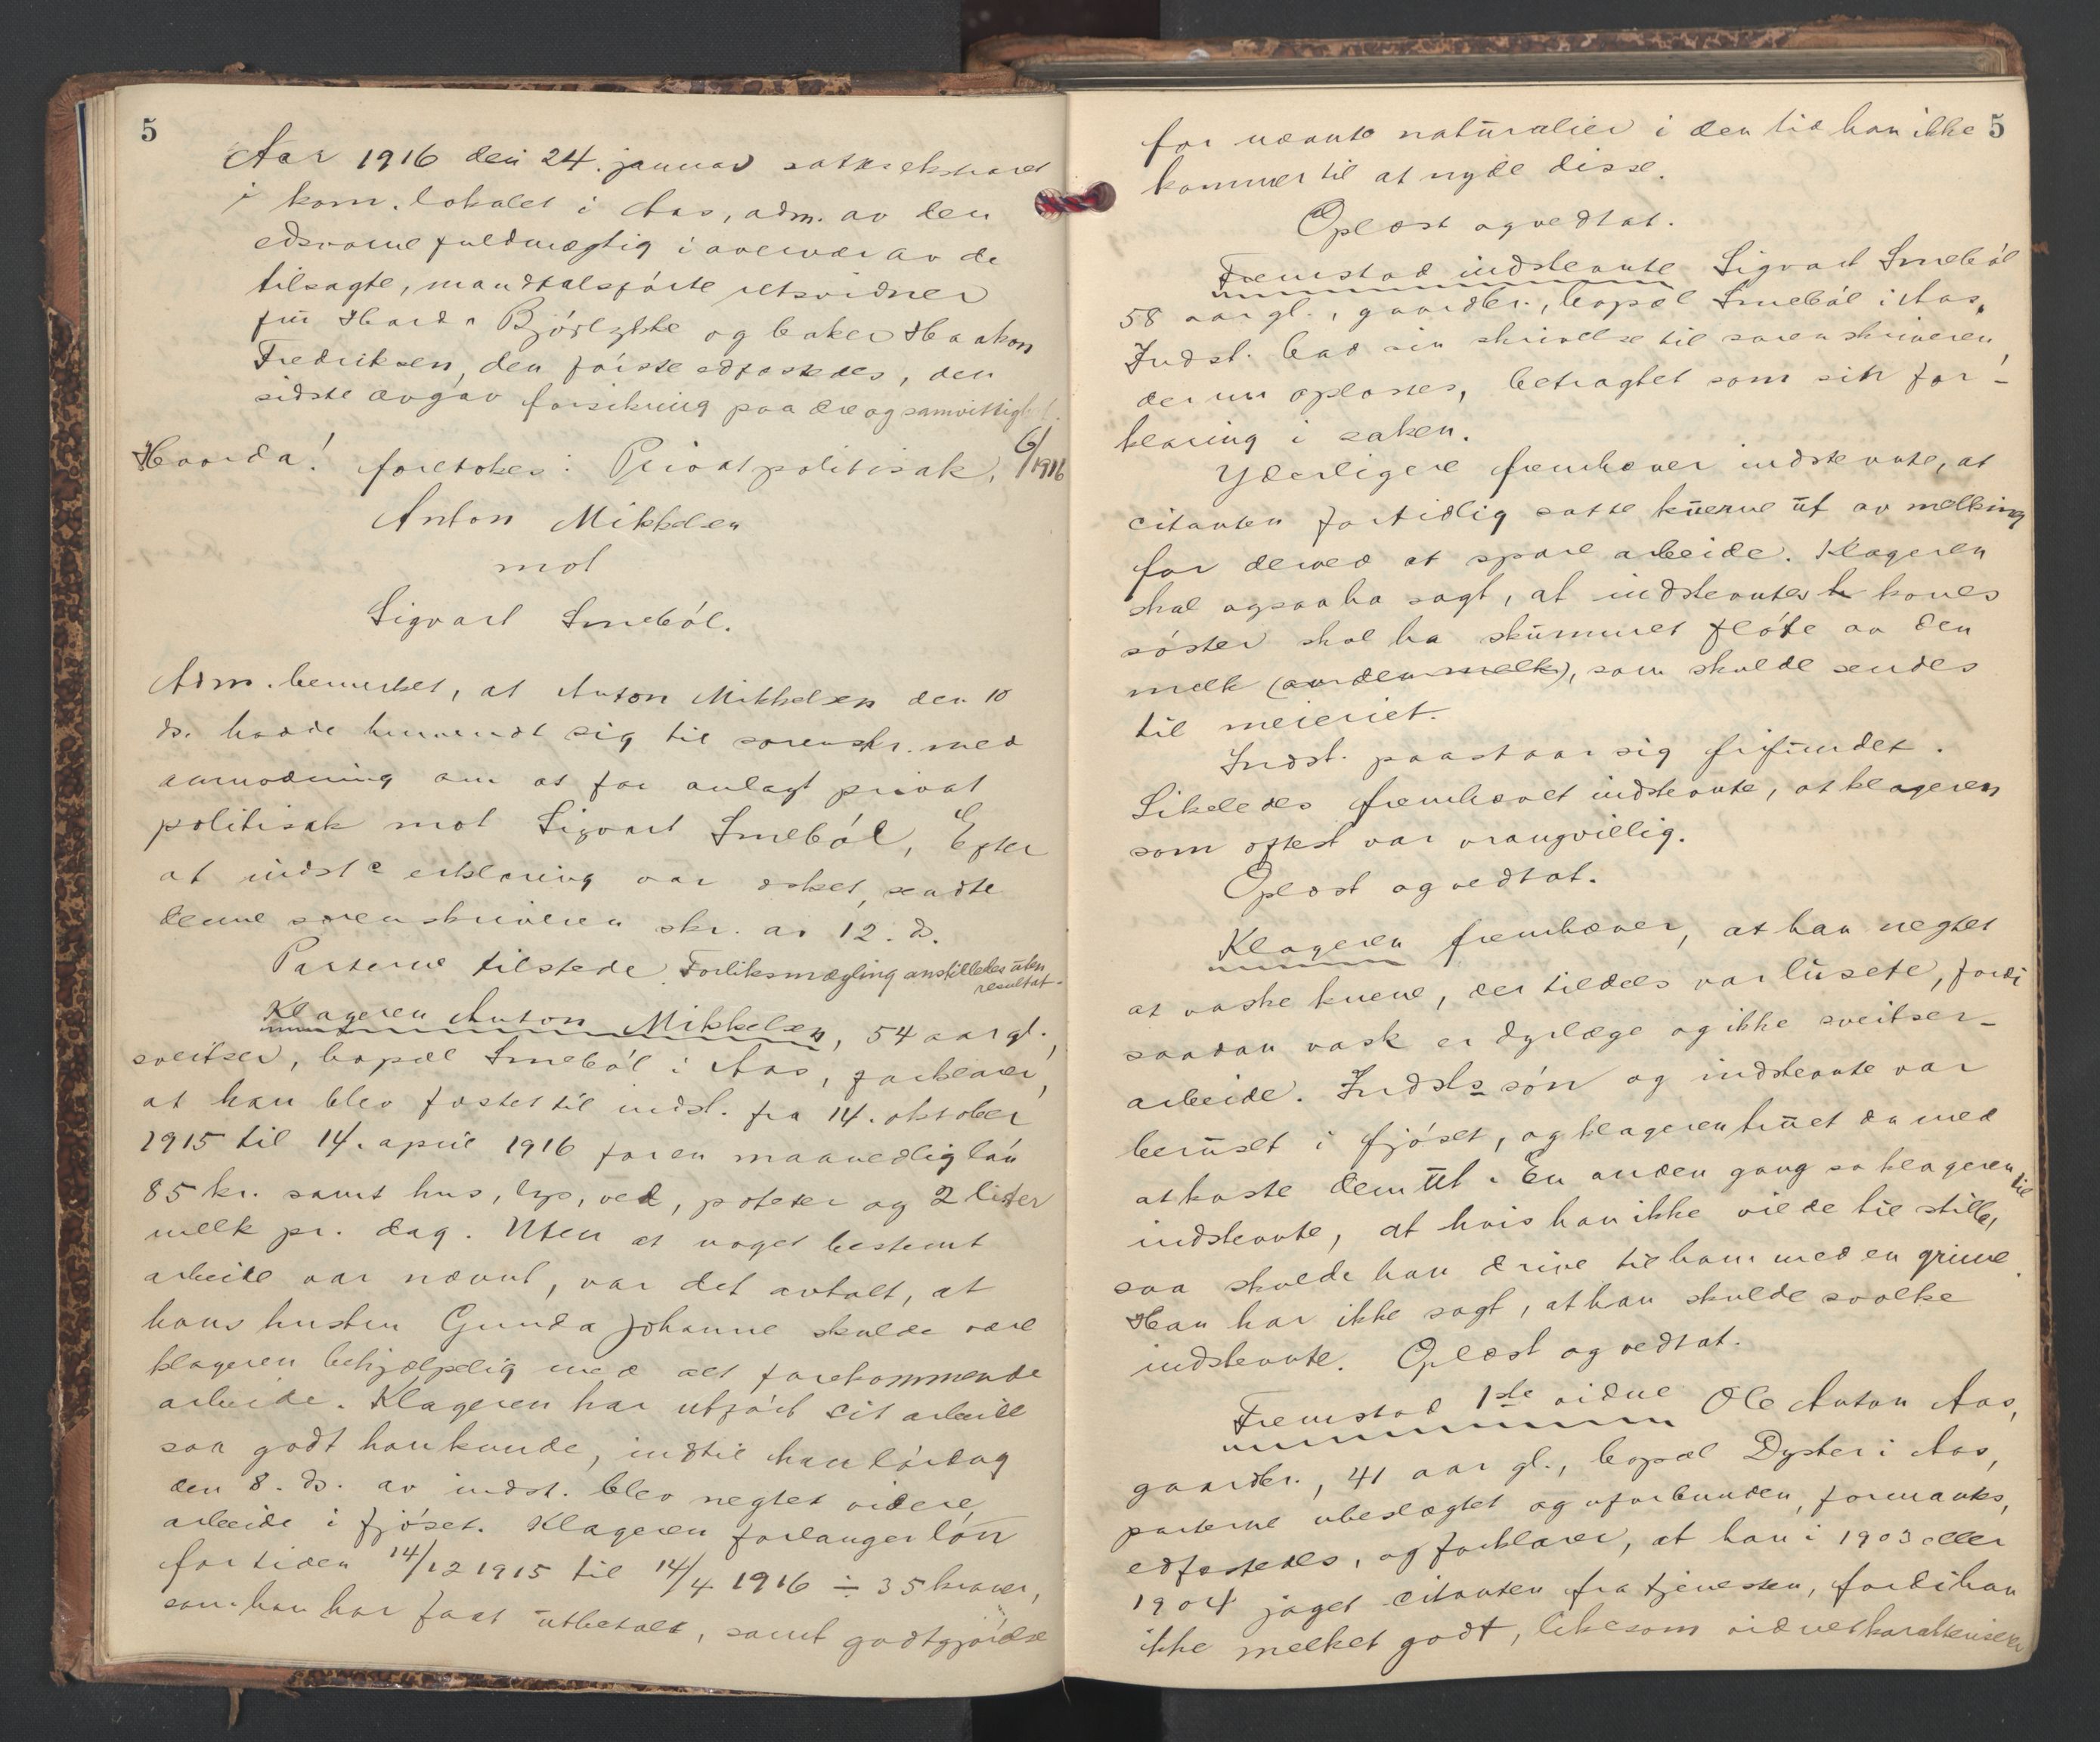 5
Aar 1916 den 24. januar sattes ekstraret
i kom. lokalet i Aas, adm. av den
edsvorne fuldmægtig i overvær av de
tilsagte, mandtalsførte retsvidner
Bjørlykke og baker Haakon
Fredriksen, den første edfæstedes, den
sidste avgav forsikring paa ære og samvittighet.
Hvorda! foretokes: Privat politisak, 6/1916
Anton Mikkelsen
mot
Sigvart Smebøl.
Adm. bemerket, at Anton Mikkelsen den 10
ds. hadde henvendt sig til sorenskr. med
anmodning om at faa anlagt privat
politisak mot Sigvart Smebøl, Efter
at indst.s erklæring var æsket, sendte
denne sorenskriveren skr. av 12. ds.
Parterne tilstede. Forliksmægling anstilledes uten
resultat.
Klageren Anton Mikkelsen, 54 aar gl.,
sveitser, bopæl Smebøl i Aas, forklarer,
at han blev fæstet til indst. fra 14. oktober
1915 til 14. april 1916 for en maanedlig løn
85 kr. samt hus, lys, ved, poteter og 2 liter
melk pr. dag. Uten at noget bestemt
arbeide var nævnt, var det avtalt, at
hans hustru Gunda Johanne skulde være
klageren behjælpelig med alt forekommende
arbeide. Klageren har utført sit arbeide
saa godt han kunde, indtil han lørdag
den 8. ds. av indst. blev negtet videre
arbeide i fjøset. Klageren forlanger løn
for tiden 14/12 1915 til 14/4 1916 ÷ 35 kroner,
som han har faat utbetalt, samt godtgjørelse
5
for nævnte naturalier i den tid han ikke
kommer til at nyde disse.
Oplæst og vedtat.
Fremstod indstevnte Sigvart Smebøl
58 aar gl., gaardbr., bopæl Smebøl i Aas.
Indst. bad sin skrivelse til sorenskriveren,
der nu oplæstes, betragtet som sin for-
klaring i saken.
Yderligere fremhæver indstevnte, at
citanten fortidlig satte kuerne ut av melking
for derved at spare arbeide. Klageren
skal ogsaa ha sagt, at indstevntes h kones
søster skal ha skummet fløte av den
melk (av den melk), som skulde sendes
til meieriet.
Indst. paastaar sig frifundet.
Likeledes fremhævet indstevnte, at klageren
som oftest var vrangvillig.
Oplæst og vedtat.
Klageren fremhæver, at han negtet
at vaske kuene, der tildels var lusete, fordi
saadan vask er dyrlæge og ikke sveitser-
arbeide. Indsts søn og indstevnte var
beruset i fjøset, og klageren truet da med
at kaste dem ut. En anden gang sa klageren til
indstevnte, at hvis han ikke vilde tie stille,
saa skulde han drive til ham med en grime.
Han har ikke sagt, at han skulde svolke
indstevnte. Oplæst og vedtat.
Fremstod 1ste vidne Ole Anton Aas,
gaardbr., 41 aar gl., bopæl Dyster i Aas,
parterne ubeslægtet og uforbunden, formantes,
edfæstedes, og forklarer, at han i 1903 eller
1904 jaget citanten fra tjenesten, fordi han
ikke melket godt, likesom vidnet karakteriserer